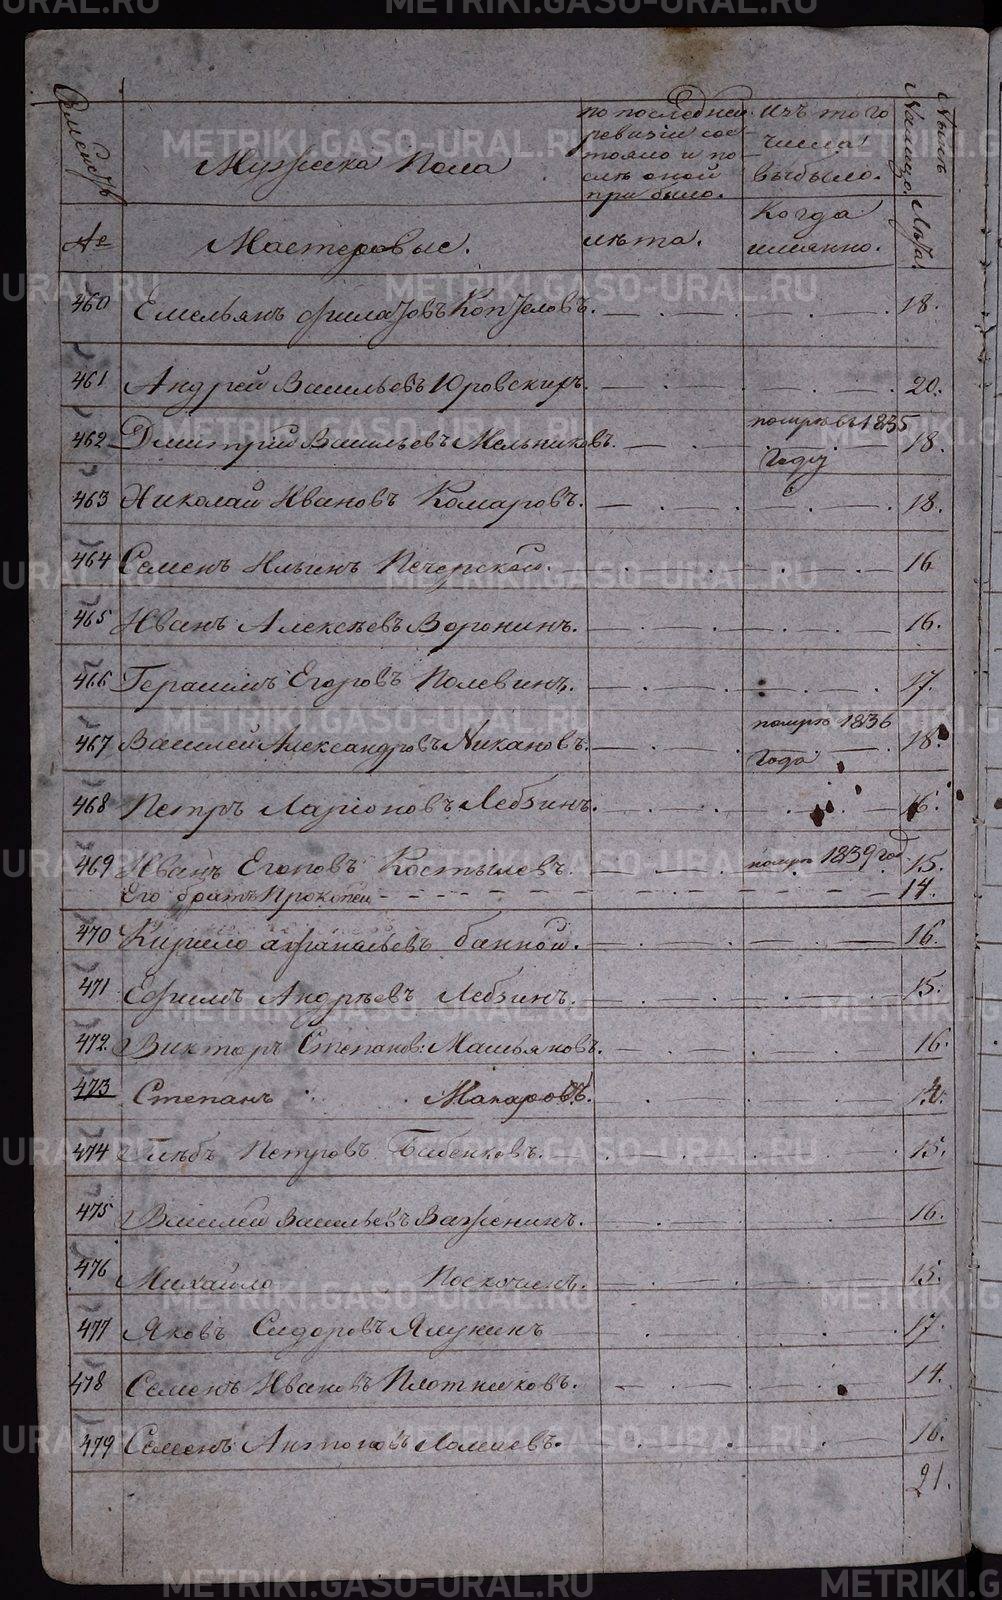 METRIKI.GASO-URAL.RU
Мужеска Пола
по последней
ревизіи сос-
тояло и по-
слѣ оной
прибыло.
изъ того
числа
выбыло.
Нынѣ
На лицо.
№
Мастеровые.
лѣта.
Когда
имянно.
Лѣта.
460 Емельянъ Филатовъ Коптеловъ. 18.
461 Андрей Васильевъ Юровскихъ. 20.
462 Дмитрій Васильевъ Мельниковъ. помре въ 1835 году 18.
463 Николай Ивановъ Комаровъ. 18.
464 Семенъ Ильинъ Печерской. 16
465 Иванъ Алексѣевъ Воронинъ. 16.
466 Герасимъ Егоровъ Полевинъ. 17.
467 Василей Александровъ помре 1836 года 18.
468 Петръ Ларіоновъ Лебзинъ. 16.
469 Иванъ Егоровъ Костылевъ. помре 1839 год 15.
Его братъ Прокопей 14.
470 Кирило афанасьевъ банной. 16.
471 Ефимъ Андрѣевъ Лебзинъ. 15.
472. Викторъ Степанов: Масьяновъ. 16.
473 Степанъ Макаровъ.
474 Глѣбъ Петровъ Бабенковъ. 15.
475 Василей Васильевъ Важенинъ. 16.
476 Михайло Поскочинъ. 15.
477 Яковъ Сидоровъ Ялунинъ 17.
478 Семенъ Ивановъ Плотниковъ. 14.
479 Семенъ Антоновъ Ломаевъ. 16.
21.